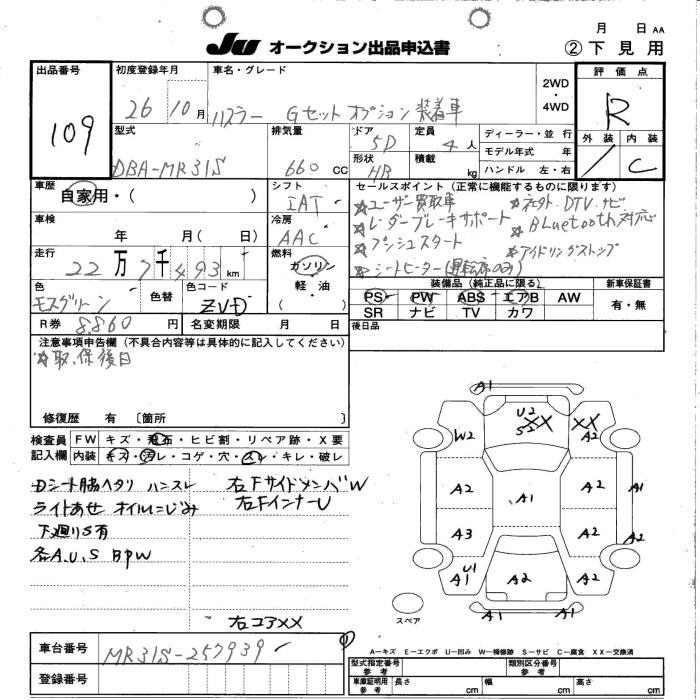 月 日 AA
JU オークション出品申込書
② 下見用
出品番号
109
初度登録年月
26 10月
車名・グレード
ハスラー Gセット オプション装着車
2WD
4WD
評価点
R
外装 内装
/ C
型式
DBA-MR31S
排気量
660 CC
ドア
5D
形状
HB
定員
4 人
積載
kg
ディーラー・並行
モデル年式 年
ハンドル 左・右
車歴
自家用・( )
シフト
IAT
冷房
AAC
車検
年 月( 日)
走行
22万7千493km
燃料
ガソリン
軽油
( )
色
モスグリーン
色替
色コード
ZVD
R券 8,860 円
名変期限 月 日
セールスポイント(正常に機能するものに限ります)
☆ユーザー買取車 ☆社外DTVナビ
☆レーダーブレーキサポート ☆Bluetooth対応
☆プッシュスタート ☆アイドリングストップ
☆シートヒーター(運転席のみ)
装備品(純正品に限る)
新車保証書
PS PW ABS エアB AW
SR ナビ TV カワ
有・無
後日品
注意事項申告欄(不具合内容等は具体的に記入してください)
☆取、保後日
修復歴 有 〔箇所 〕
検査員
記入欄
FW キズ・飛石・ヒビ割・リペア跡・X要
内装 キズ・汚レ・コゲ・穴・スレ・キレ・破レ
Dシート脇ヘタリ ハンスレ
ライトあせ オイルにじみ
下廻りS有
各A.U.S BPW
右Fサイドメンバ W
右FインナーU
右コアXX
A1
U2
S XX
XX
W2
A2
A2
A1
A2
A1
A3
A2
A2
U1
A1
A2
A2
A1
A1
スペア
A−キズ E−エクボ U−凹み W−補修跡 S−サビ C−腐食 XX−交換済
車台番号
MR31S-257939
登録番号
型式指定番号
参考
類別区分番号
参考
車庫証明用
参考
長さ cm
幅 cm
高さ cm